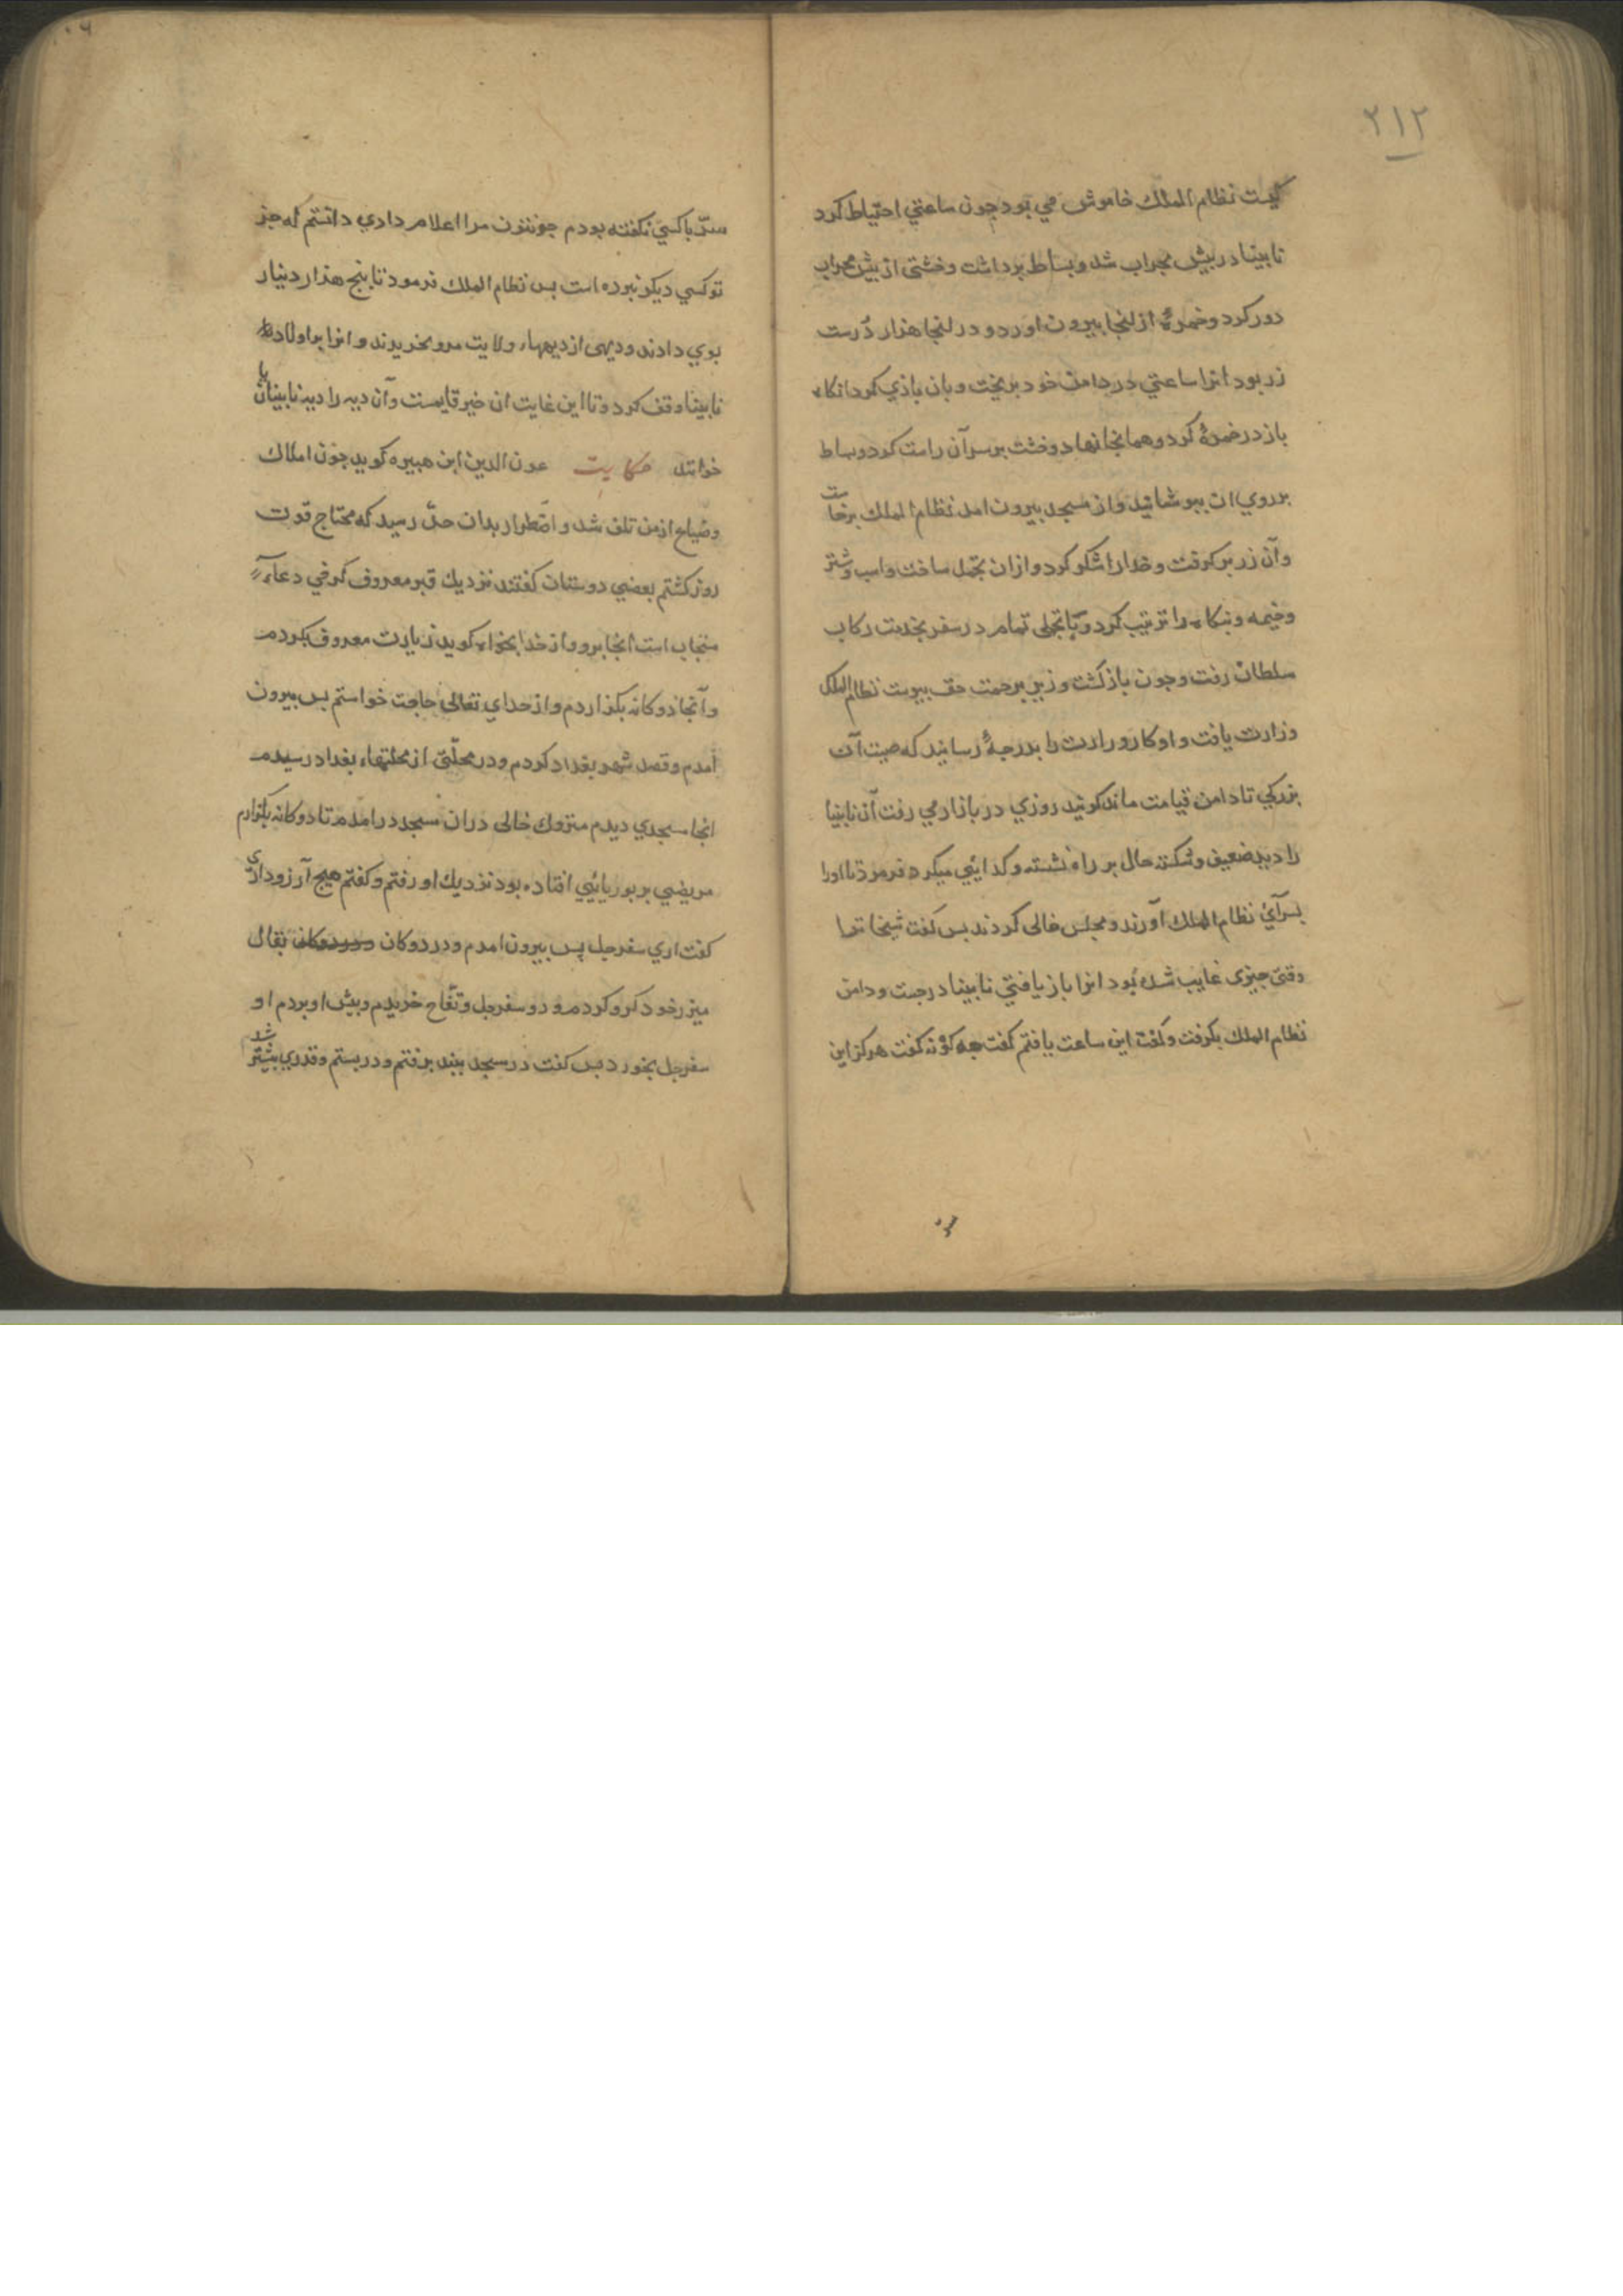 ٢١٢
كيست نظام الملك خاموش مي بود جون ساعتي احتياط كرد
نابينا در بيش محراب شد و بساط برداشت و خشتى از بيش محراب
دور كرد و خمرۀ از انجا بيرون اورد و در انجا هزار دُرست
زر بود انرا ساعتي در دامن خود بريخت و بان بازي كرد انكاه
باز در خمرۀ كرد و همانجا نهاد و خشت بر سر آن راست كرد و بساط
بر روي ان ببوشانيد و از مسجد بيرون امد نظام الملك برخاست
و آن زر بر كرفت و خدار اشكر كرد و از ان تجمل ساخت و اسب و شتر
و خيمه و بنكاه را ترتيب كرد و با تجملى تمام در سفر بخدمت ركاب
سلطان رفت و جون باز كشت وزير برحمت حق بيوست نظام الملك
وزارت يافت و او كار وزارت را بدرجۀ رسانيد كه صيت آن
بزركي تا دامن قيامت ماند كويند روزي در بازار مي رفت آن نابينا
را ديد ضعيف و شكسته حال بر راه نشسته و كدايئي ميكرد فرمود تا اورا
بسرآي نظام الملك آورند و مجلس خالى كردند بس كفت شيخا ترا
وقتى جيزى غايب شده بود انرا باز يافتي نابينا در جست و دامن
نظام الملك بكرفت و كفت اين ساعت يافتم كفت جه كونه كفت هركز اين
سرّ با كسي نكفته بودم جون تو مرا اعلام دادي دانستم كه جز
تو كسي ديكر نبرده است بس نظام الملك فرمود تا بنج هزار دينار
بوي دادند و ديهى از ديهها، ولايت مرو بخريدند و انرا بر اولاد
نابينا وقف كرد و تا اين غايت ان خير قايمست و آن ديه را ديه نابينايان
خوانند حكايت عون الدين ابن هبيره كويد جون املاك
و ضياع از من تلف شد و اضطرار بدان حدّ رسيد كه محتاج قوت
روز كشتم بعضي دوستان كفتند نزديك قبر معروف كرخي دعا
مستجاب است انجا برو و از خدا بخواه كويد زيارت معروف بكردم
و آنجا دوكانه بكزاردم و از خداي تعالى حاجت خواستم بس بيرون
آمدم و قصد شهر بغداد كردم و در محلّتى از محلتهاء بغداد رسيدم
انجا مسجدي ديدم متروك خالى دران مسجد در امدم تا دوكانه بكزارم
مريضي بر بوريائيي افتاده بود نزديك او رفتم و كفتم هيج آرزو داري
كفت اري سفرجل پس بيرون امدم و در دوكان در دوكان بقال
ميزر خود كرو كردم و دو سفرجل و تفّاح خريدم و بيش او بردم او
سفرجل بخورد بس كفت در مسجد ببند برفتم و در بستم و قدري بيشتر شد